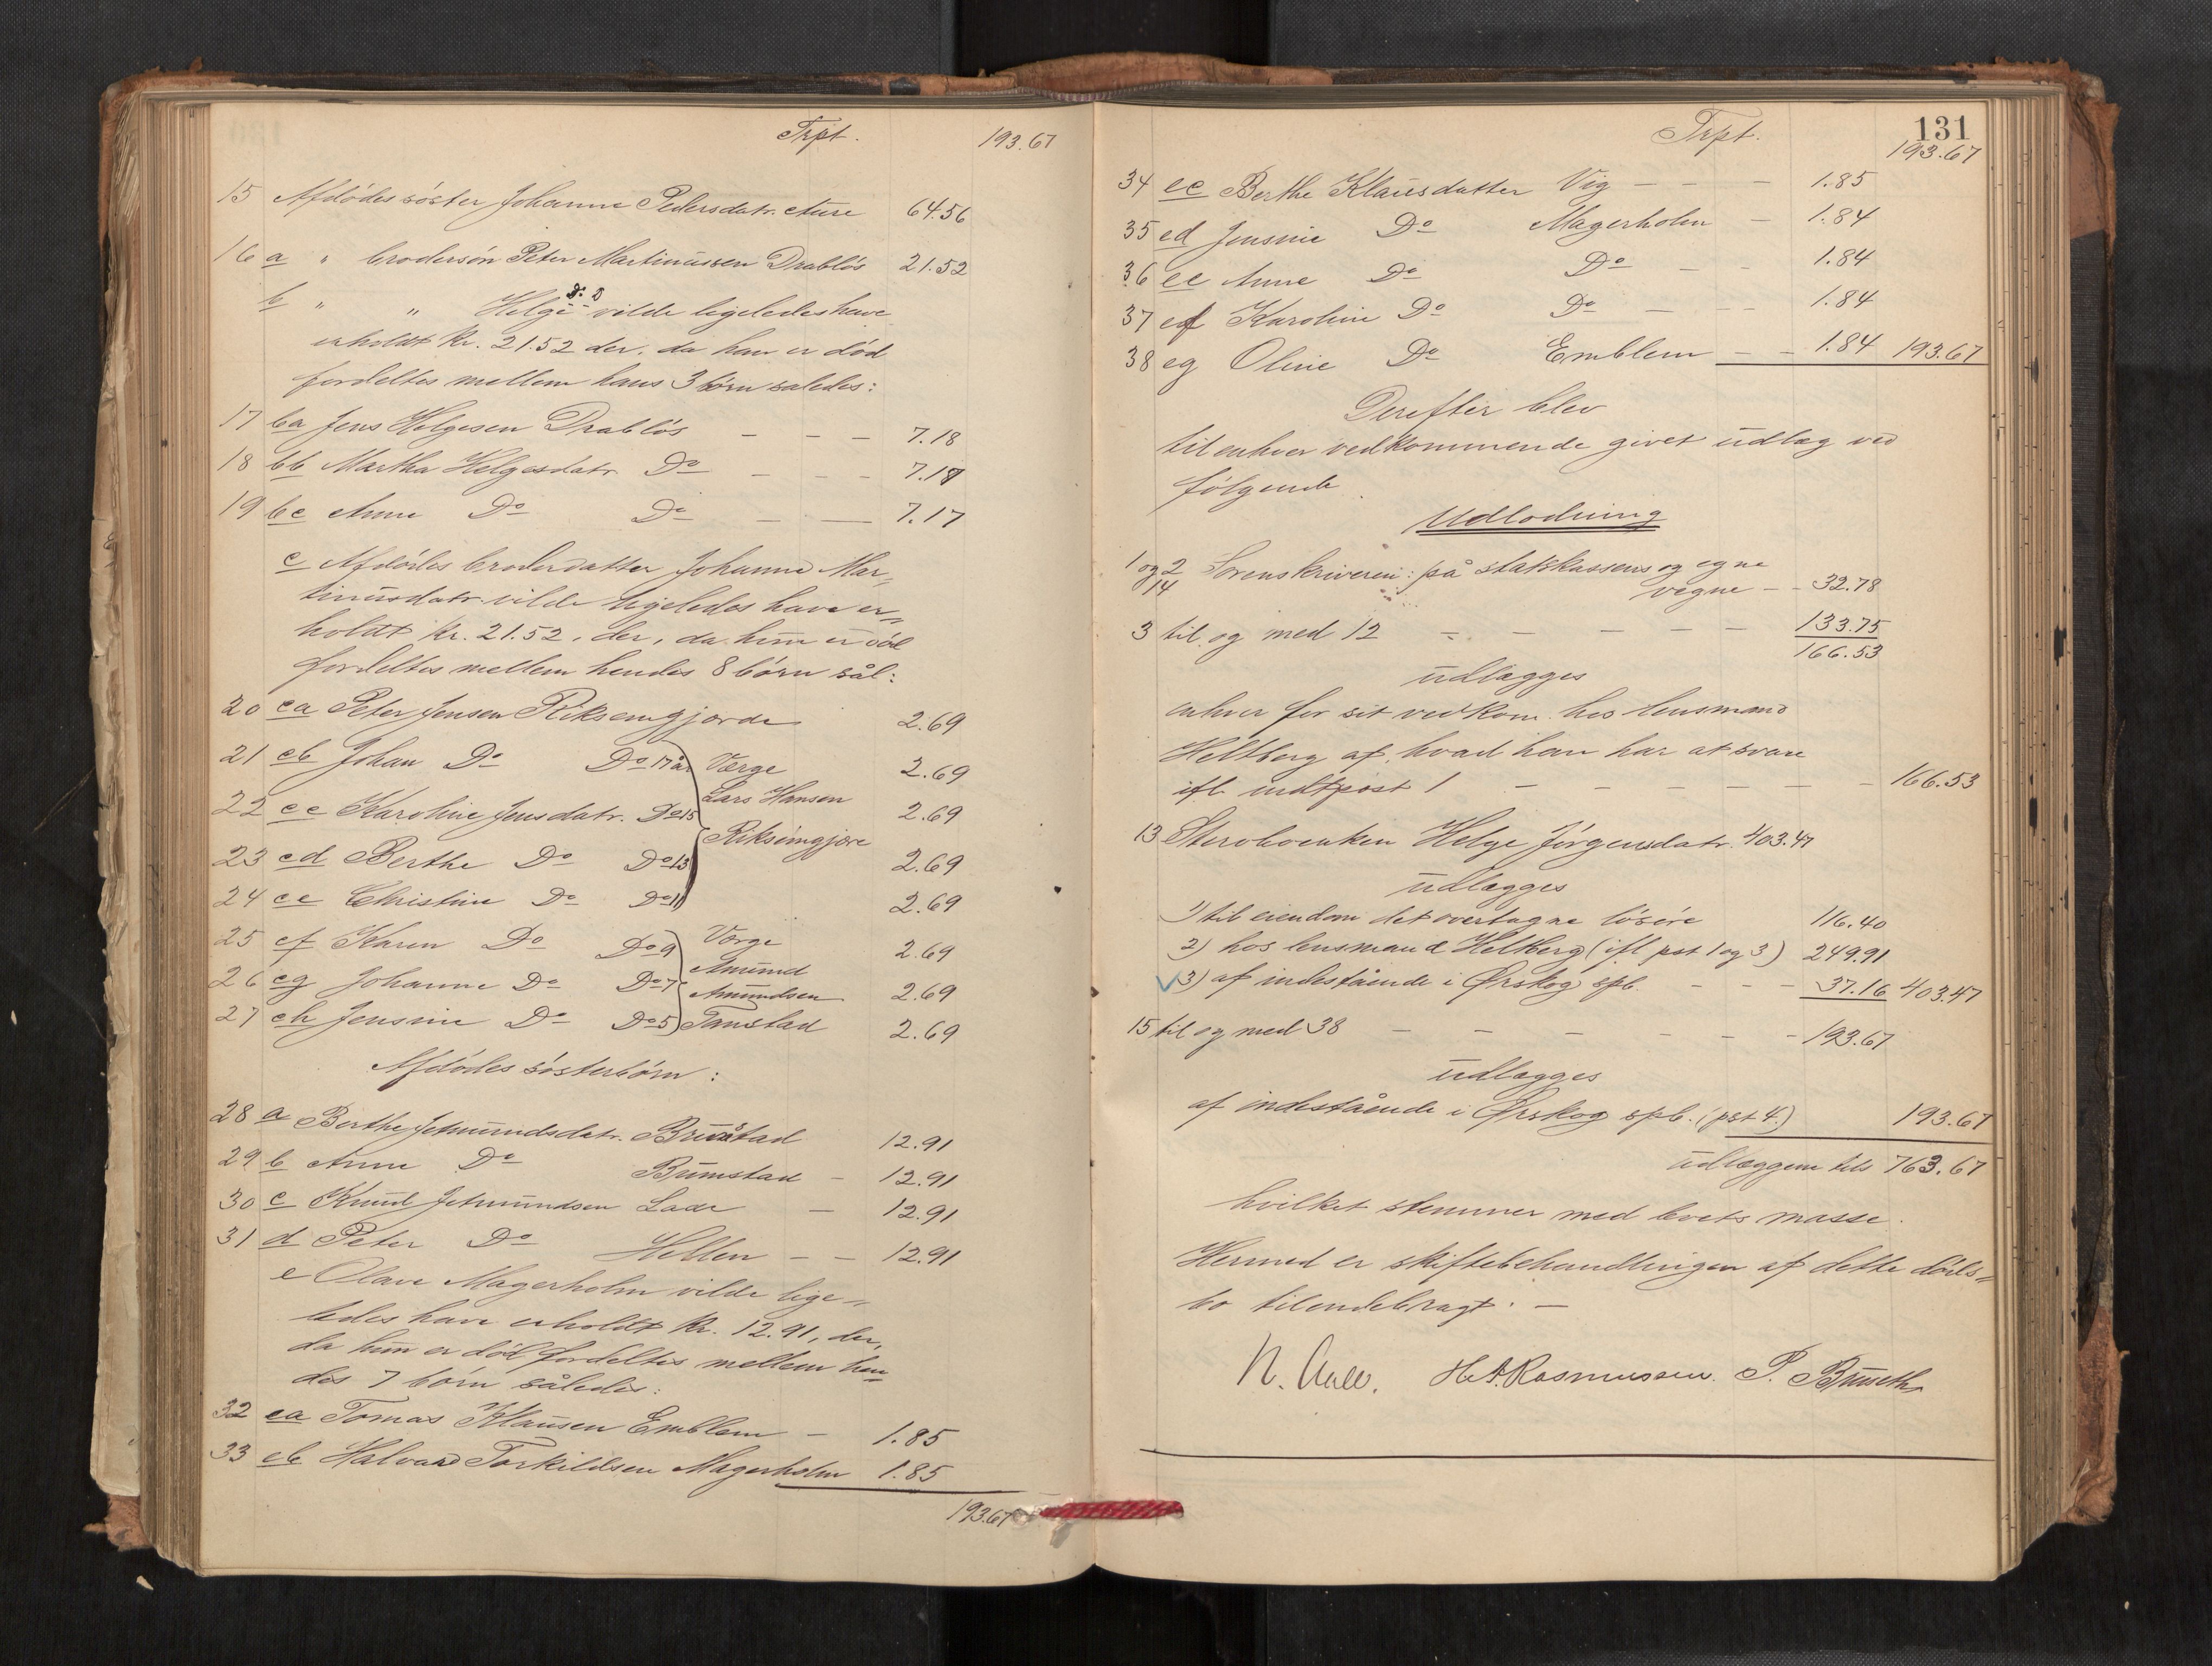 Trpt. 193.67
15 Afdødes søster Johanne Pedersdatr. Aure 64.56
16 a " brodersøn Peter Martinussen Drabløs 21.52
b " " Helge Do Do vilde ligeledes have
erholdt kr. 21.52 der, da han er død
fordeltes mellem hans 3 børn saledes:
17 ba Jens Helgesen Drabløs - - - 7.18
18 bb Martha Helgesdatr. Do - - - 7.17
19 bc Anne Do Do - - 7.17
c Afdødes broderdatter Johanne Mar-
tinusdatr. vilde ligeledes have er-
holdt kr. 21.52, der, da hun er død
fordeltes mellem hendes 8 børn sål:
20 ca Peter Jensen Riksemgjorde 2.69
21 cb Johan Do Do 17 år Værge 2.69
Lars Hansen
22 cc Karoline Jensdatr. Do 15 2.69
Riksemgjore
23 cd Berthe Do Do 13 2.69
24 ce Christine Do Do 11 2.69
25 cf Karen Do Do 9 Værge 2.69
Amund
26 cg Johanne Do Do 7 Amundsen 2.69
27 ch Jensine Do Do 5 Tanstad 2.69
Afdødes søsterbørn:
28 a Berthe Jetmundsdatr. Brustad 12.91
29 b Anne Do Bumstad - 12.91
30 c Knud Jetmundsen Lade - 12.91
31 d Peter Do Hellen - - 12.91
e Olave Magerholm vilde lige-
ledes have erholdt kr. 12.91, der,
da hun er død fordeltes mellem hen-
des 7 børn således:
32 ea Tomas Klausen Emblem - 1.85
33 eb Halvard Torkildsen Magerholm 1.85
193.67
131
Trpt. 193.67
34 ec Berthe Klausdatter Vig - - - 1.85
35 ed Jensine Do Magerholm - 1.84
36 ee Anne Do Do - - 1.84
37 ef Karoline Do Do - - - 1.84
38 eg Oline Do Emblem - - 1.84 193.67
Derefter blev
til enhver vedkommende givet udlæg ved
følgende
Udlodning
1 og 2 Sorenskriveren: på statskassens og egne
14 vegne - - 32.78
3 til og med 12 - - - - - 133.75
166.53
udlægges
enhver for sit vedkom. hos lensmand
Heltberg af, hvad han har at svare
ifl. indtpost 1 - - - - - - 166.53
13 Sterboenken Helge Jørgensdatr. 403.47
udlægges
1) til eiendom det overtagne løsøre 116.40
2) hos lensmand Heltberg (ifl. pst 1 og 3) 249.91
3) af indestående i Ørskog spb. - - - 37.16 403.47
15 til og med 38 - - - - - - 193.67
udlægges
af indestående i Ørskog spb. (pst 4.) 193.67
udlæggene tils 763.67
hvilket stemmer med boets masse.
Hermed er skiftebehandlingen af dette døds-
bo tilendebragt. -
N. Aall. H. A. Rasmussen. P. Buseth